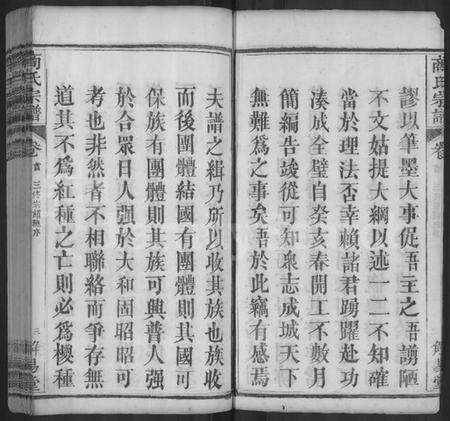 謬以筆墨大事促吾主之吾謭陋
不文姑提大綱以述一二不知確
當於理法否幸賴諸君踴躍赴功
湊成全璧自癸亥春開工不數月
簡編告竣從可知衆志成城天下
無難爲之事矣吾於此竊有感焉
夫譜之緝乃所以收其族也族收
而後團體結國有團體則其國可
保族有團體則其族可興普人強
於合眾日人強於大和固昭昭可
考也非然者不相聯絡而爭存無
道其不爲紅種之亡則必爲櫻種
商氏宗譜
卷首
商氏宗譜
卷